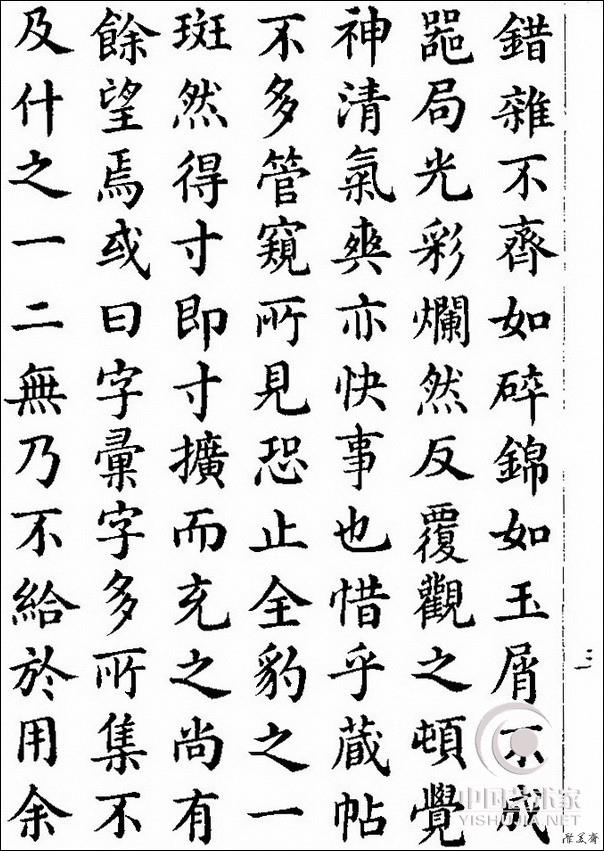 錯雜不齊如碎錦如玉屑不成
噐局光彩爛然反覆觀之頓覺
神清氣爽亦快事也惜乎蔵帖
不多管窺所見恐止全豹之一
斑然得寸即寸擴而充之尚有
餘望焉或曰字彙字多所集不
及什之一二無乃不給於用余
三
中国艺术家
YISHUJIA.NET